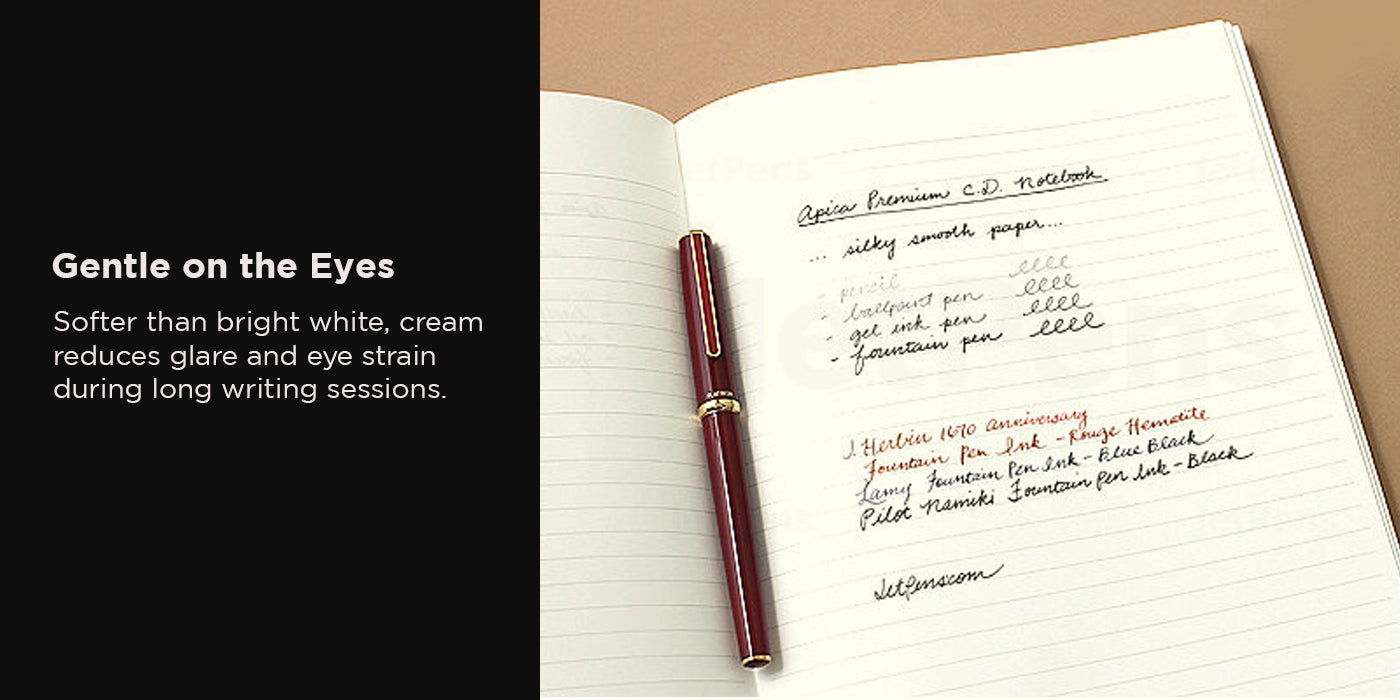 Gentle on the Eyes
Softer than bright white, cream
reduces glare and eye strain
during long writing sessions.
Apica Premium C.D. Notebook
... silky smooth paper...
- pencil
- ballpoint pen
- gel ink pen
- fountain pen
J. Herbin 1670 Anniversary
Fountain Pen Ink - Rouge Hematite
Lamy Fountain Pen Ink - Blue Black
Pilot Namiki Fountain Pen Ink - Black
JetPens.com
JetPens